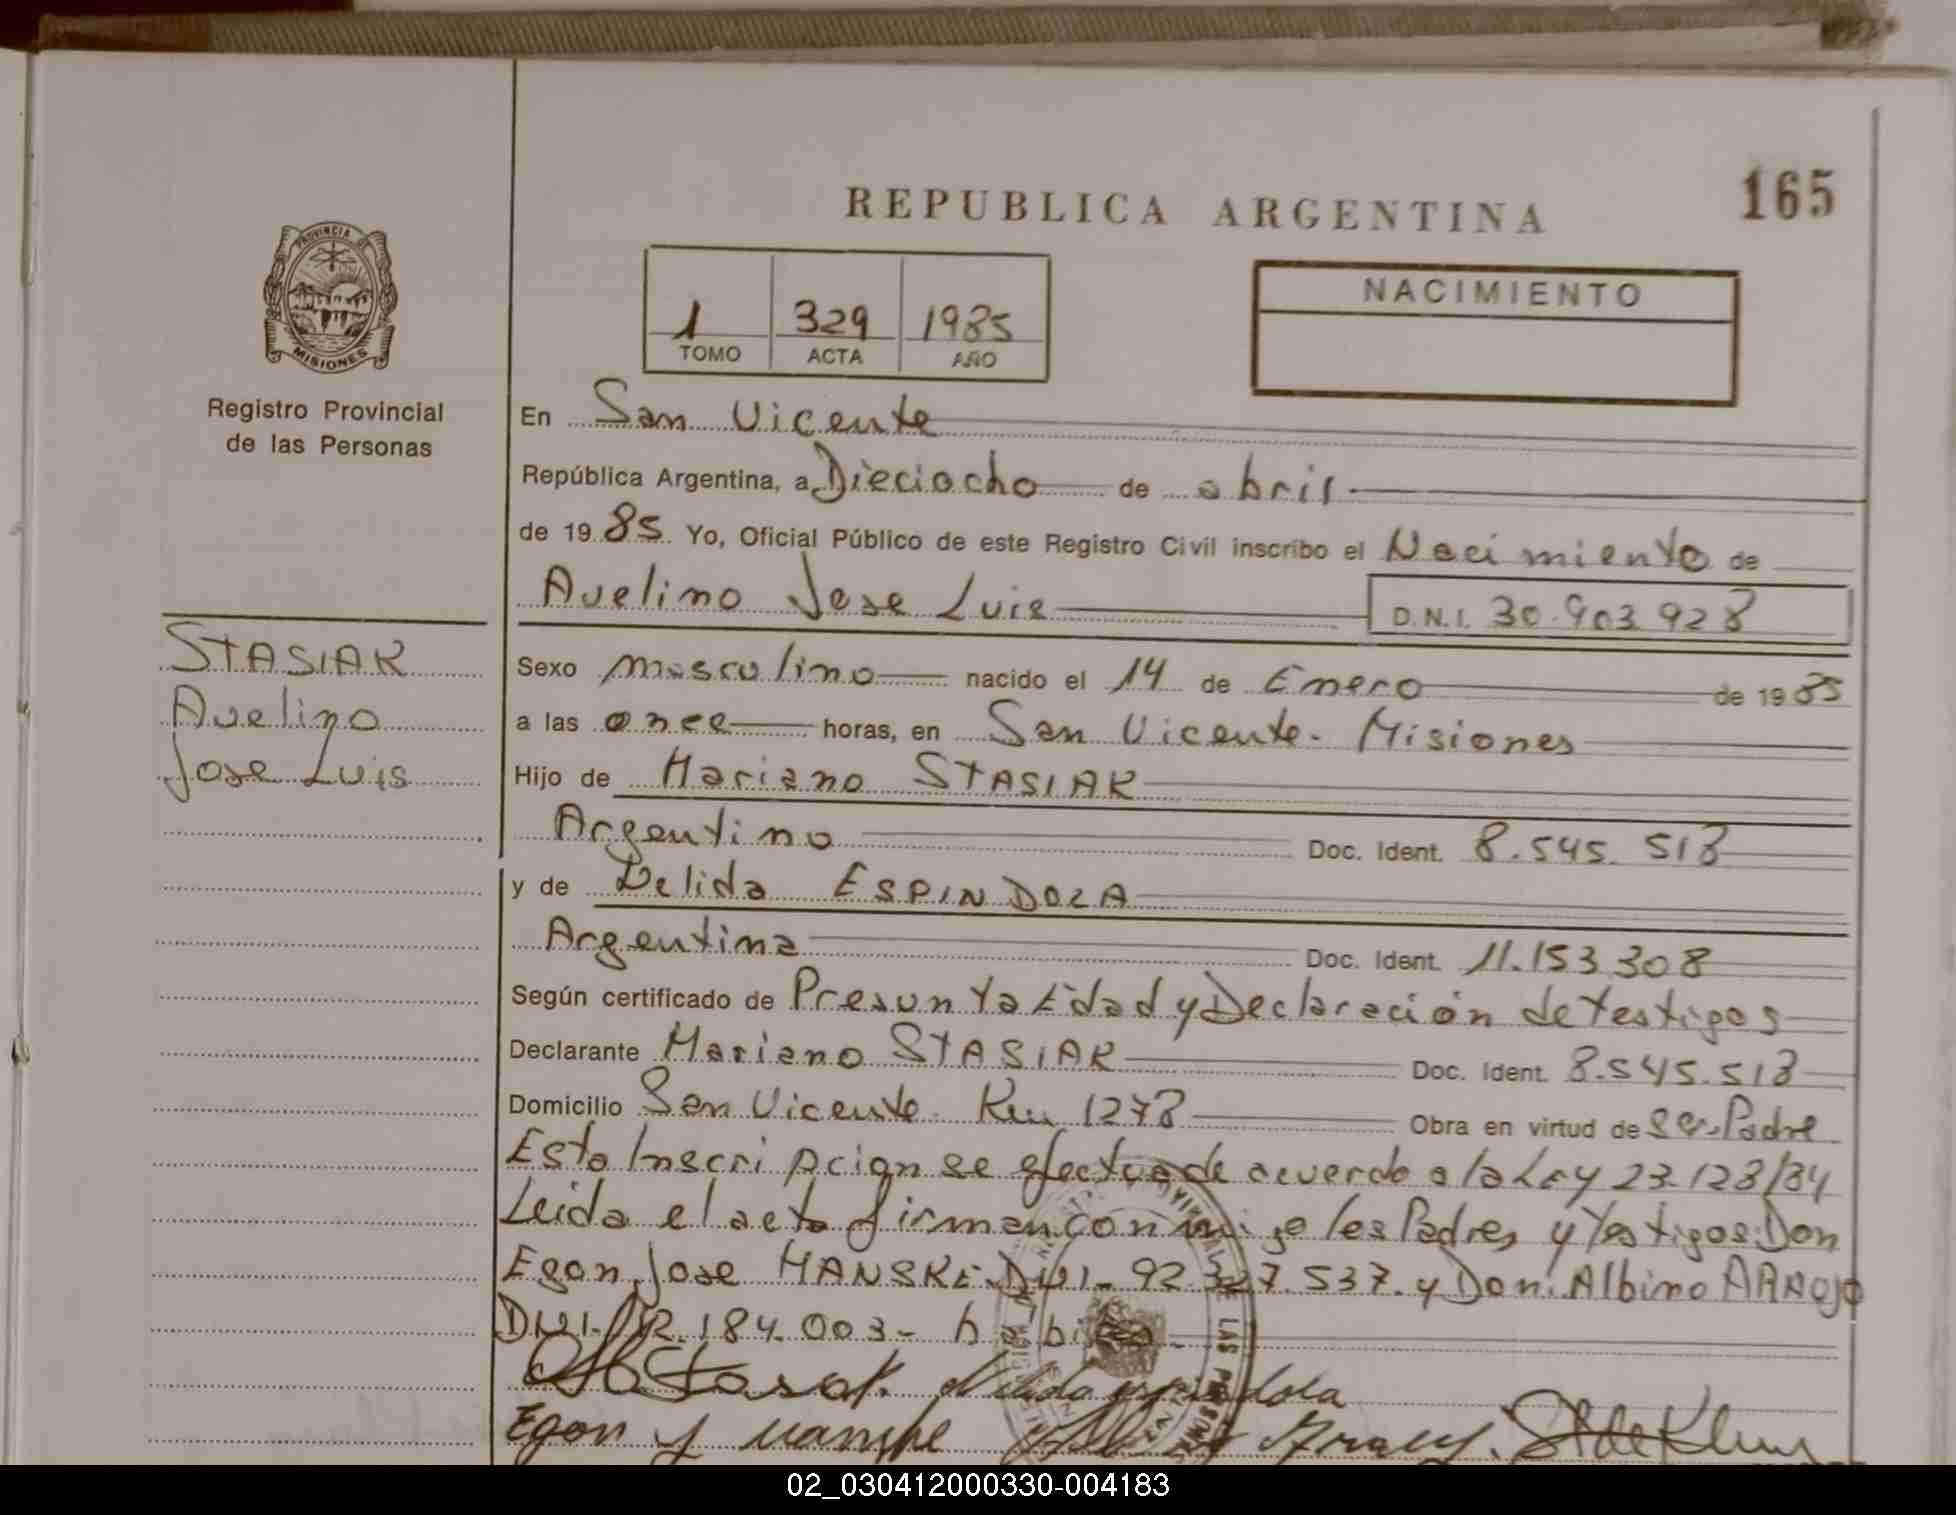 165
REPUBLICA ARGENTINA
PROVINCIA DE
MISIONES
Registro Provincial
de las Personas
1 329 1985
TOMO ACTA AÑO
NACIMIENTO
En San Vicente
República Argentina, a Dieciocho de abril
de 19 85. Yo, Oficial Público de este Registro Civil inscribo el Nacimiento de
Avelino Jose Luis
D.N.I. 30.903.928
STASIAK
Avelino
Jose Luis
Sexo masculino nacido el 14 de Enero de 19 85
a las once horas, en San Vicente. Misiones
Hijo de Mariano STASIAK
Argentino Doc. Ident. 8.545.518
y de Delida ESPINDOLA
Argentina Doc. Ident. 11.153.308
Según certificado de Presunta Edad y Declaración de testigos
Declarante Mariano STASIAK Doc. Ident. 8.545.518
Domicilio San Vicente Km 1278 Obra en virtud de ser Padre
Esta Inscripcion se efectua de acuerdo a la Ley 23.128/84
Leida el acta firman conmigo los Padres y Testigos: Don
Egon Jose MANSKE DNI- 92.327.537. y Don Albino ARAUJO
DNI 184.003-
02_030412000330-004183